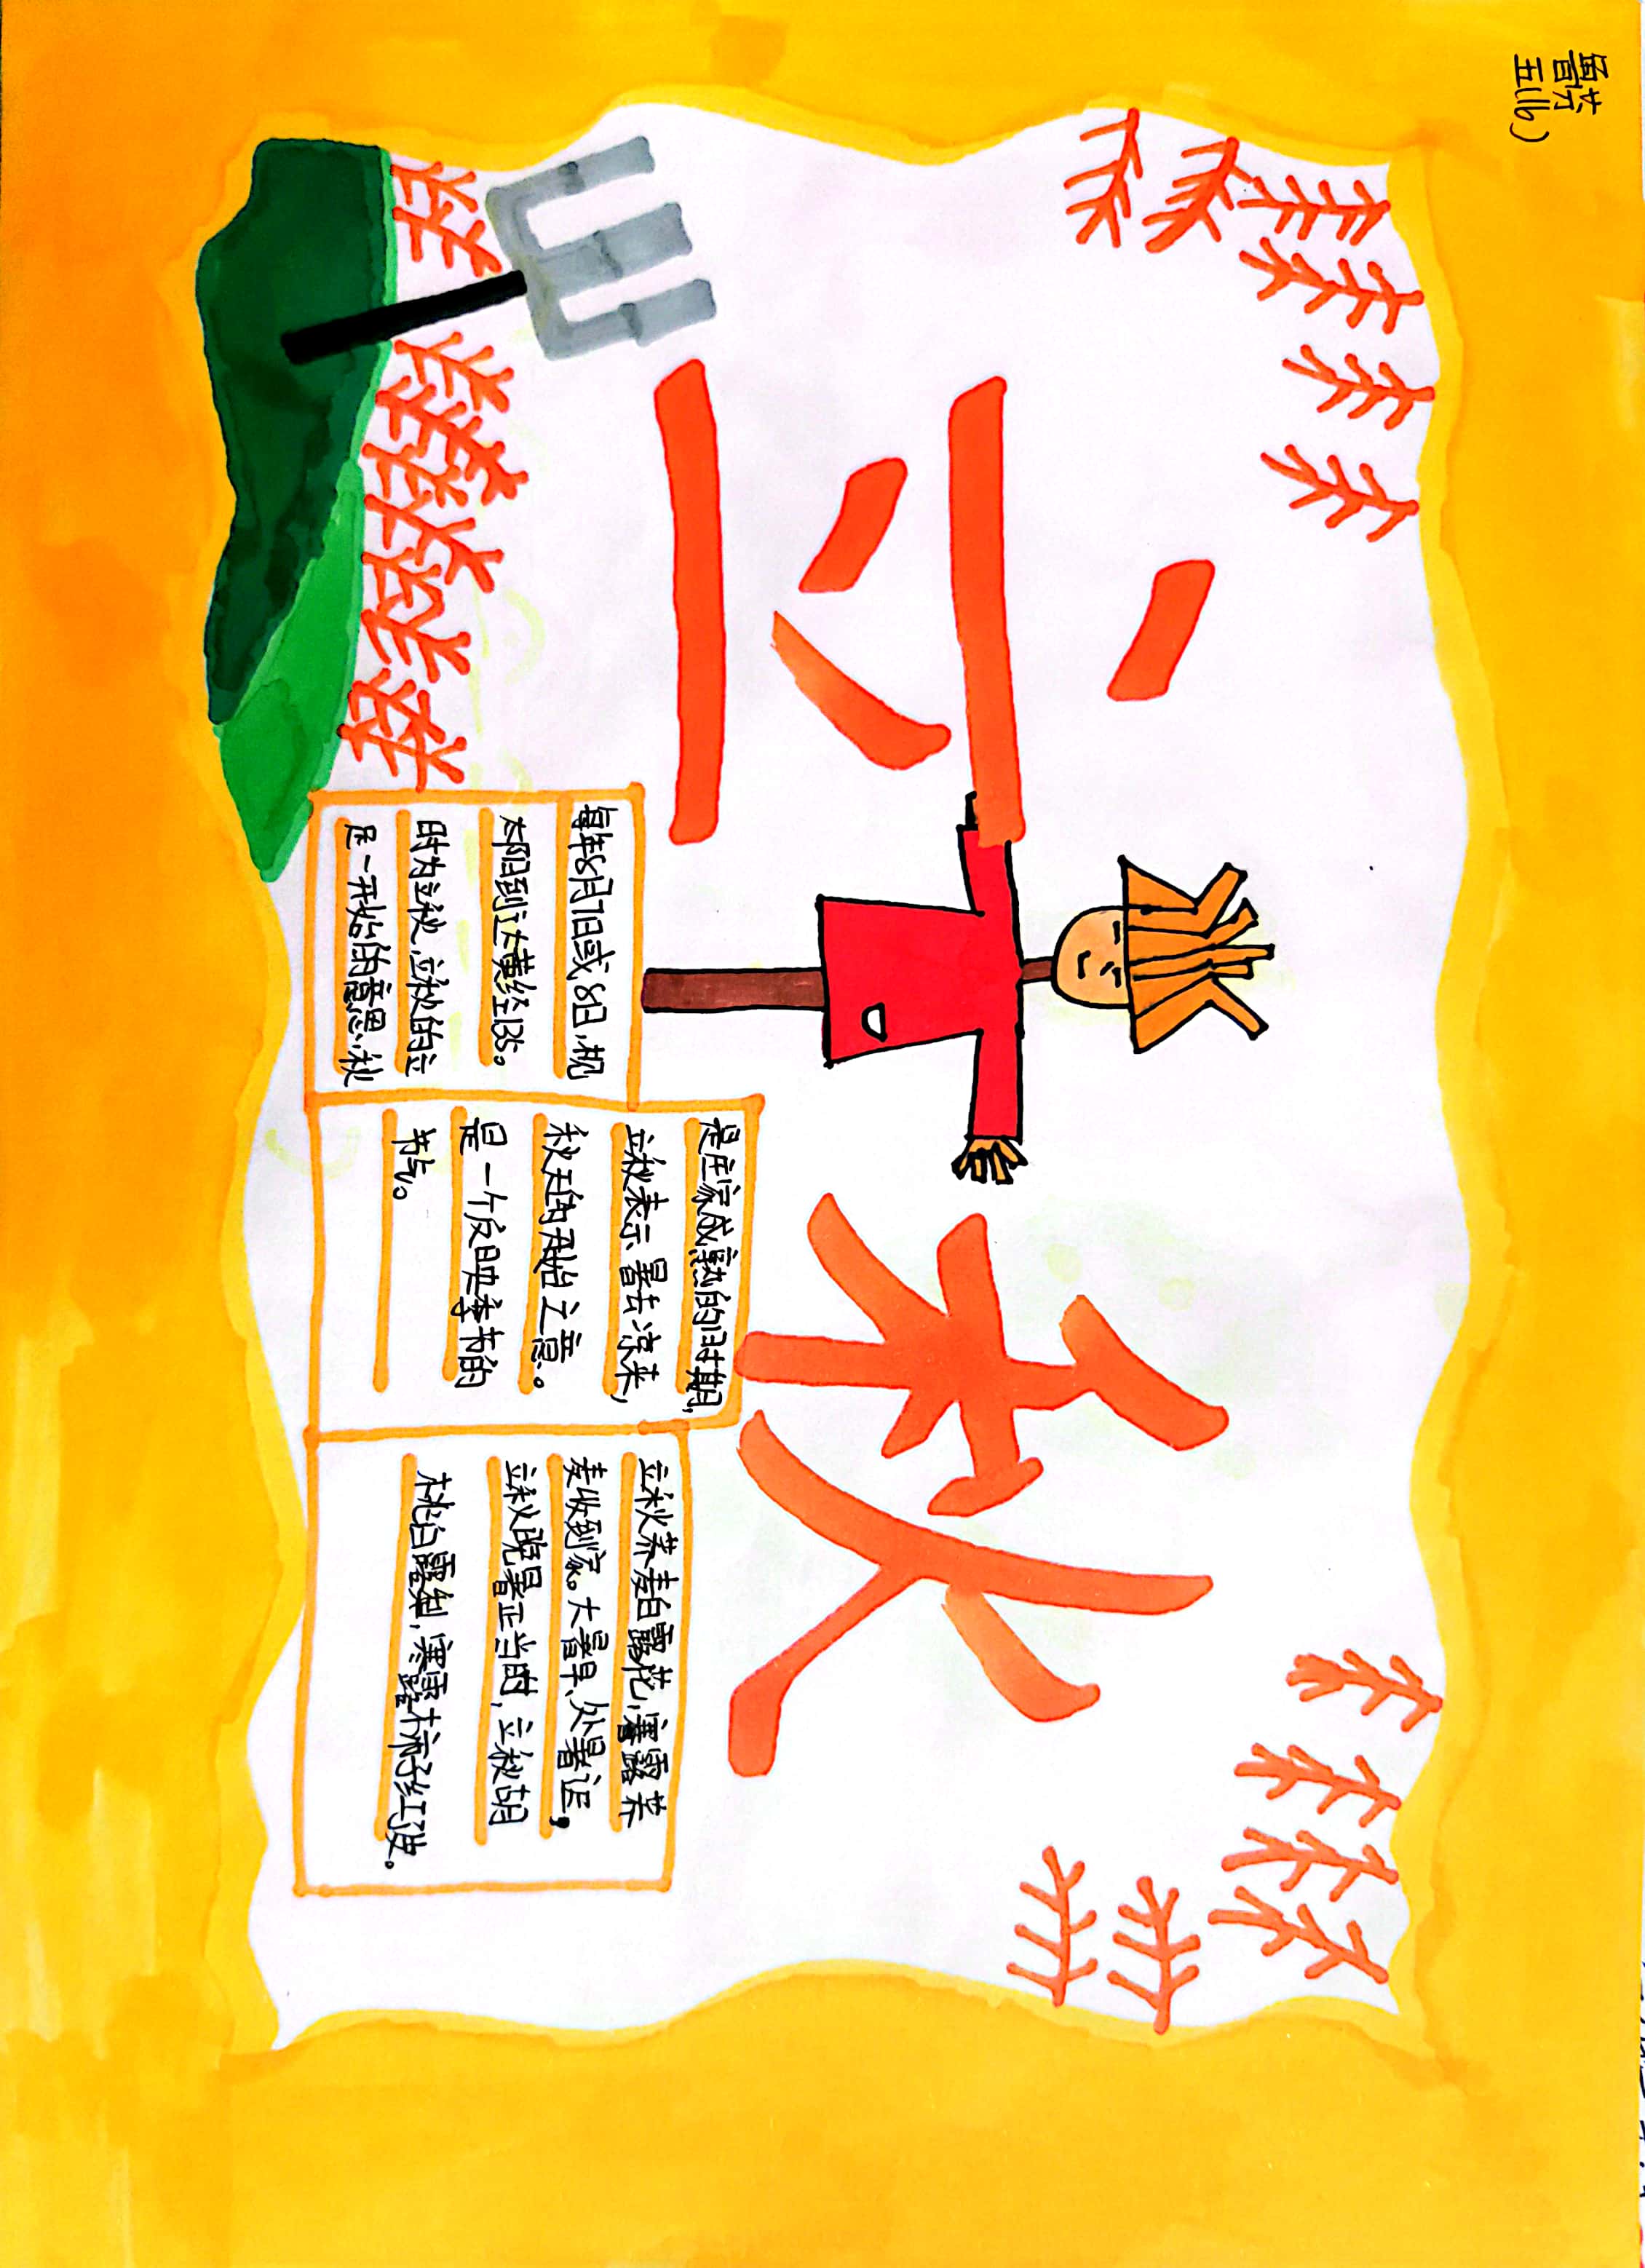 五(16)
立秋
每年8月7日或8日,视
太阳到达黄经135。
时为立秋,立秋的立
是一开始的意思,秋
是庄家成熟的时期,
立秋表示暑去凉来,
秋天的开始之意。
是一个反映季节的
节气。
立秋荞麦白露花,寒露荞
麦收到家。大暑早、处暑迟,
立秋晚暑正当时,立秋胡
桃白露梨,寒露柿子红了皮。